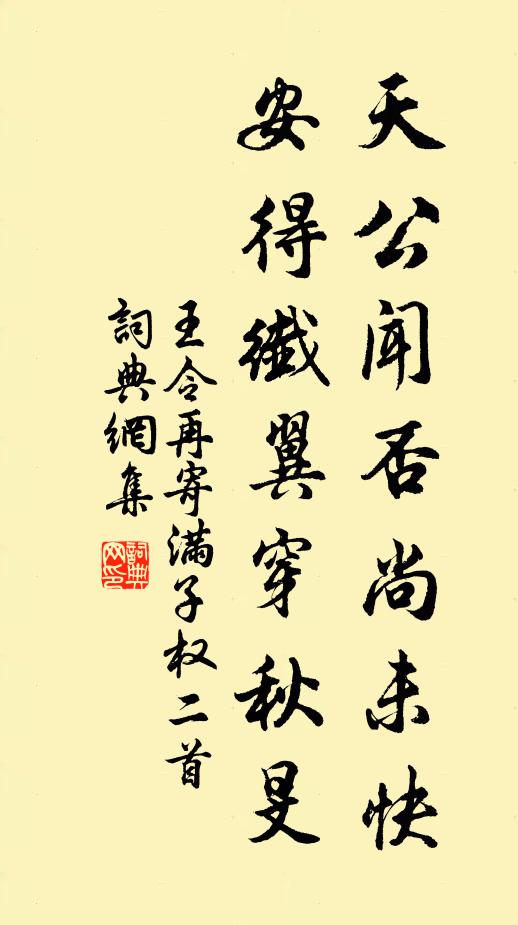 天公闻否尚未快
安得纖翼穿秋旻
王令再寄满子权二首
詞典網集
詞典网印